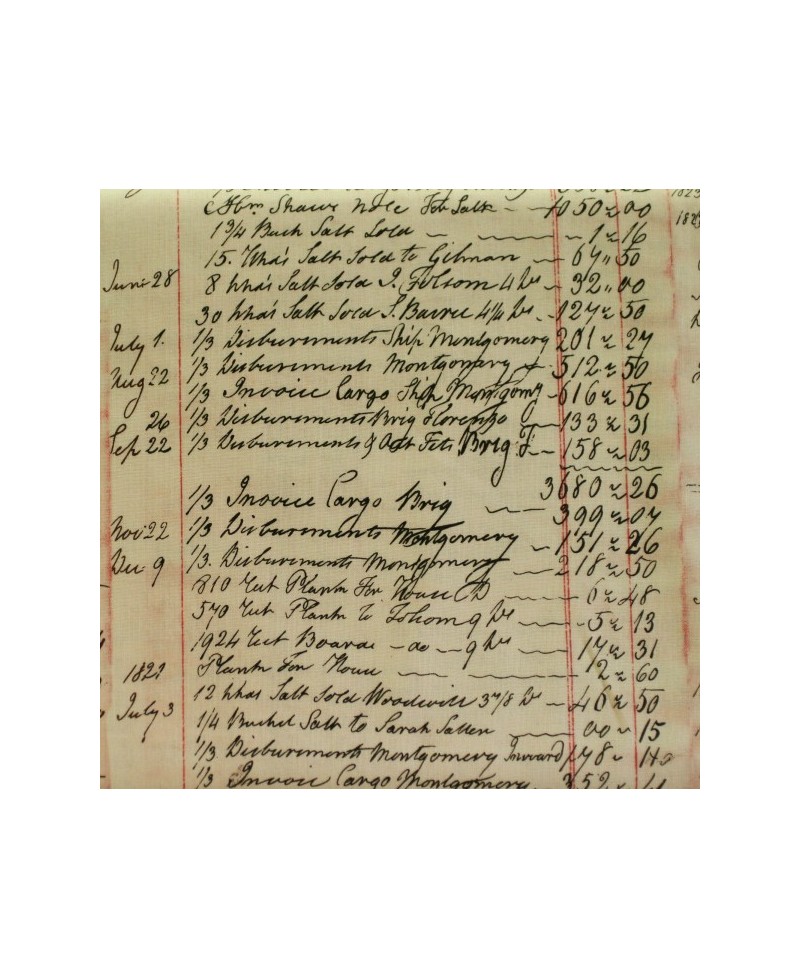 Shaws Note For Salt 1050 " 00
1 3/4 Bush Salt Sold 1 " 16
15. Hhds Salt Sold to Gilman 67 " 50
June 28 8 hhds Salt Sold J. Folsom 4 Ds 32 " 00
30 hhds Salt Sold 4 1/4 Ds 127 " 50
July 1. 1/3 Disbursements Ship Montgomery 201 " 27
Aug 22 1/3 Disbursements Montgomery 512 " 50
1/3 Invoice Cargo Ship Montgomy 616 " 56
26 1/3 Disbursements Brig Florenzo 133 " 31
Sep 22 1/3 Disbursements & Brig F. 158 " 03
3680 " 26
1/3 Invoice Cargo Brig 399 " 07
Nov 22 1/3 Disbursements Montgomery 151 " 26
Dec 9 1/3. Disbursements Montgomery 218 " 50
810 feet Plank For House 6 " 48
570 feet Plank to 9 Ds 5 " 13
1924 feet Boards - do - 9 Ds 17 " 31
Plank For House 2 " 60
12 hhds Salt Sold 3 7/8 Ds 46 " 50
July 3 1/4 Bushel Salt to Sarah 00 " 15
1/3 Disbursements Montgomery Inward 178 "
1/3 Invoice Cargo Montgomery. 352 "